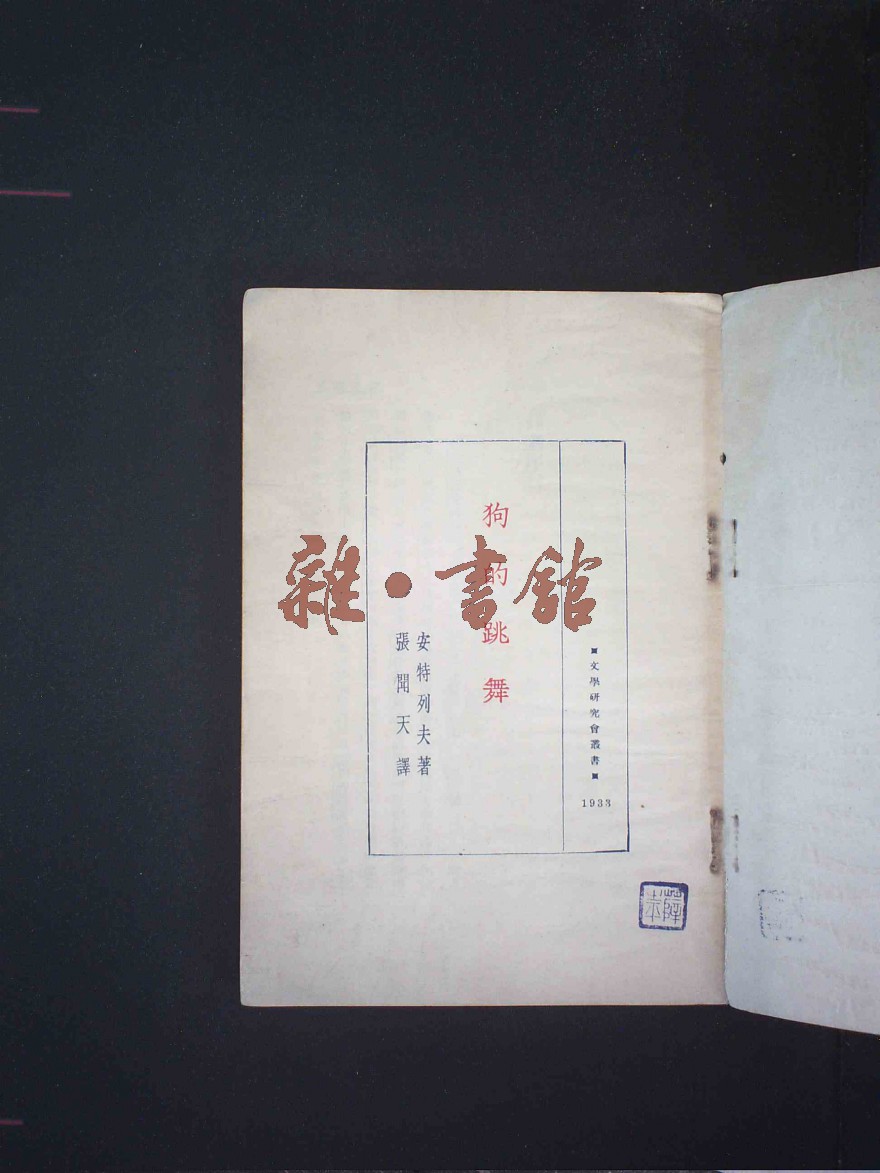 文學研究會叢書
1933
狗的跳舞
安特列夫著
張聞天譯
雜·書館